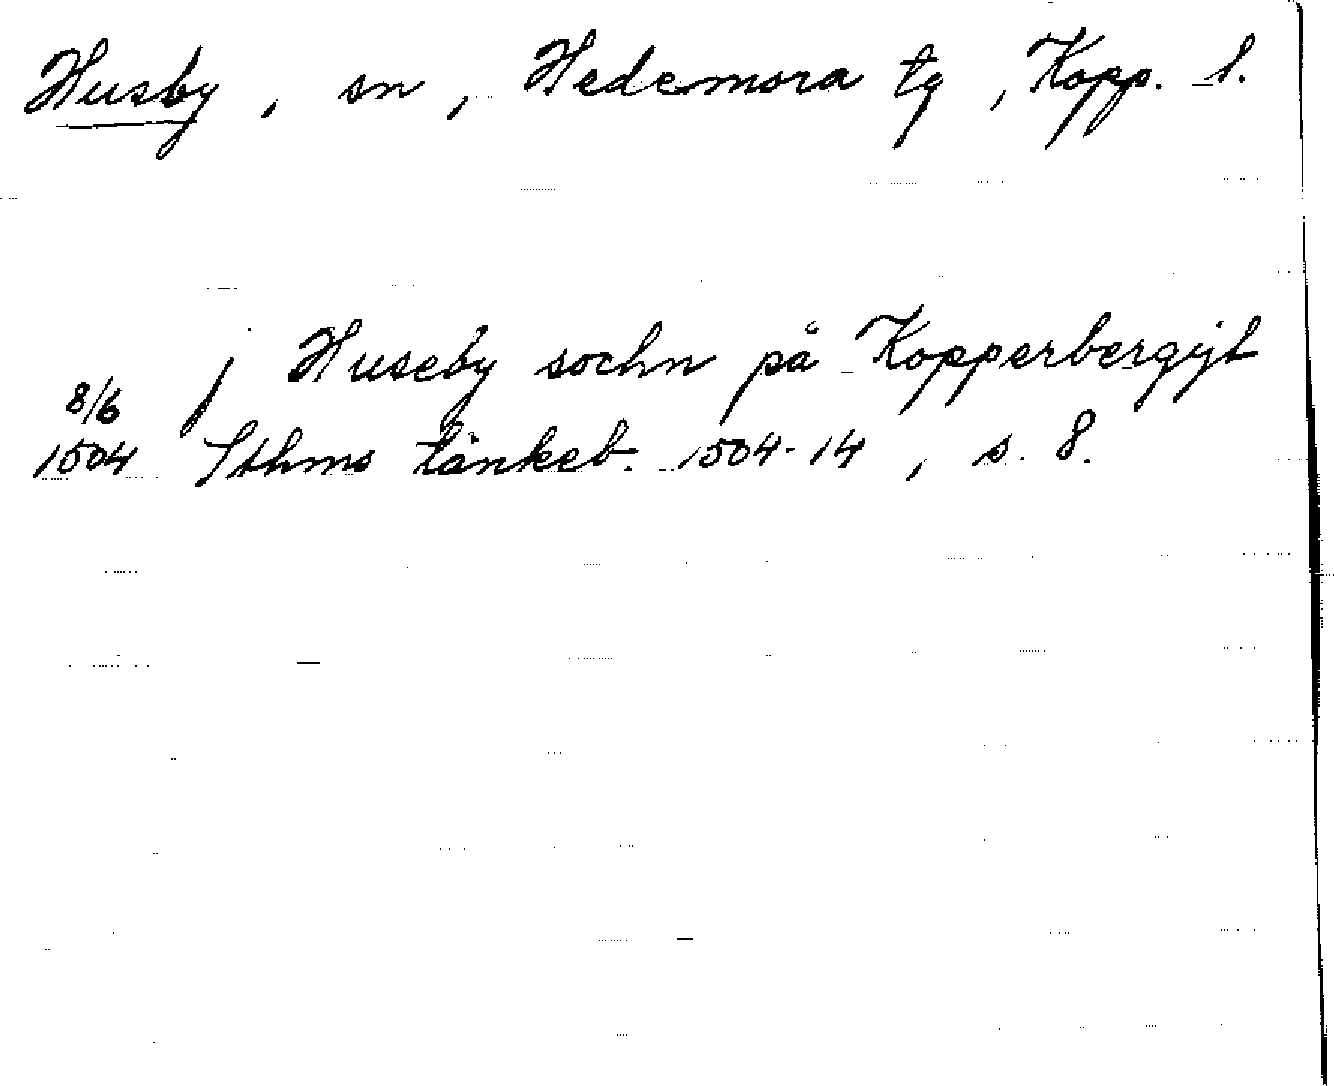 Husby, sn, Hedemora tg, Kopp. l.
j Huseby sochn på Kopperbergijt
8/6
1504 Sthms tänkeb. 1504-14, s. 8.